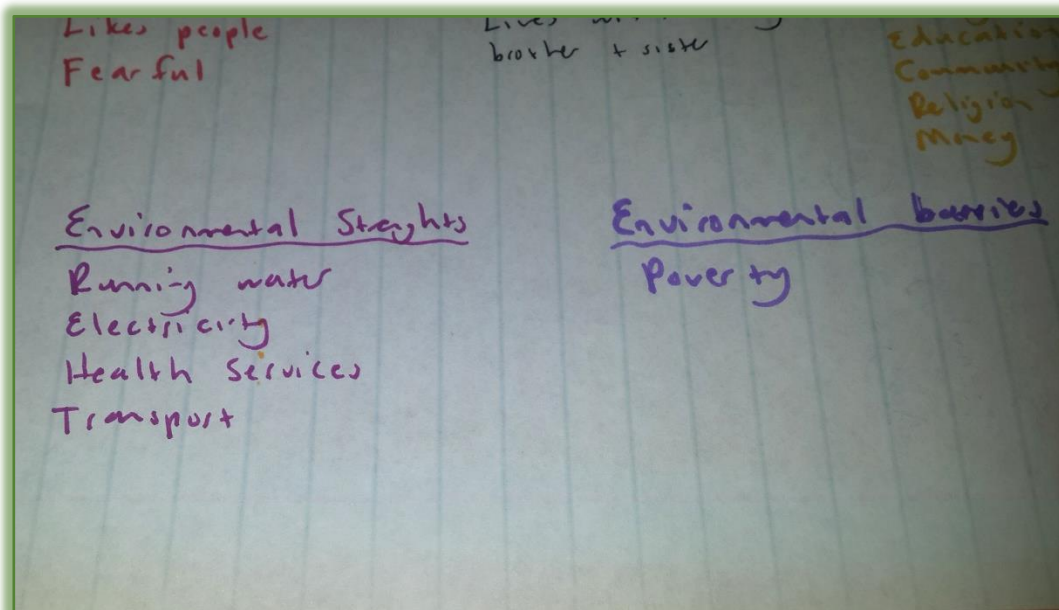 Likes people
Fearful
Lives
brother + sister
Education
Community
Religion
Money
Environmental Streghts
Running water
Electricity
Health Services
Transport
Environmental barries
Poverty